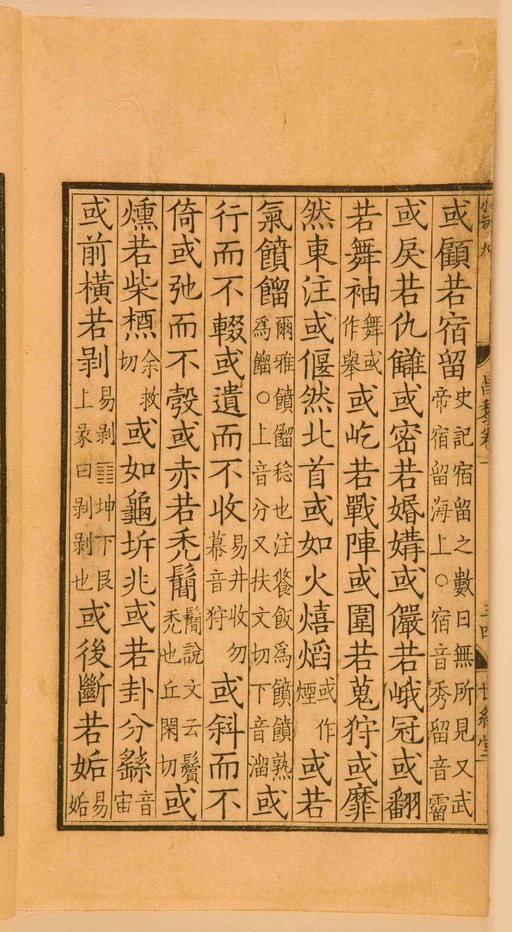 或顧若宿留史記宿留之數日無所見又武帝宿留海上○宿音秀留音霤
或戾若仇讎或密若婚媾或儼若峨冠或翻
若舞袖舞或作擧或屹若戰陣或圍若蒐狩或靡
然東注或偃然北首或如火熺焰或作煙或若
氣饙餾爾雅饙餾稔也注餐飯爲饙饙熟爲餾○上音分又扶文切下音溜或
行而不輟或遺而不收易井收勿幕音狩或斜而不
倚或弛而不彀或赤若禿鬜鬜說文云鬢禿也丘閑切或
燻若柴槱余救切或如龜坼兆或若卦分繇音宙
或前橫若剥易剥䷖坤下艮上彖曰剥剥也或後斷若姤易姤